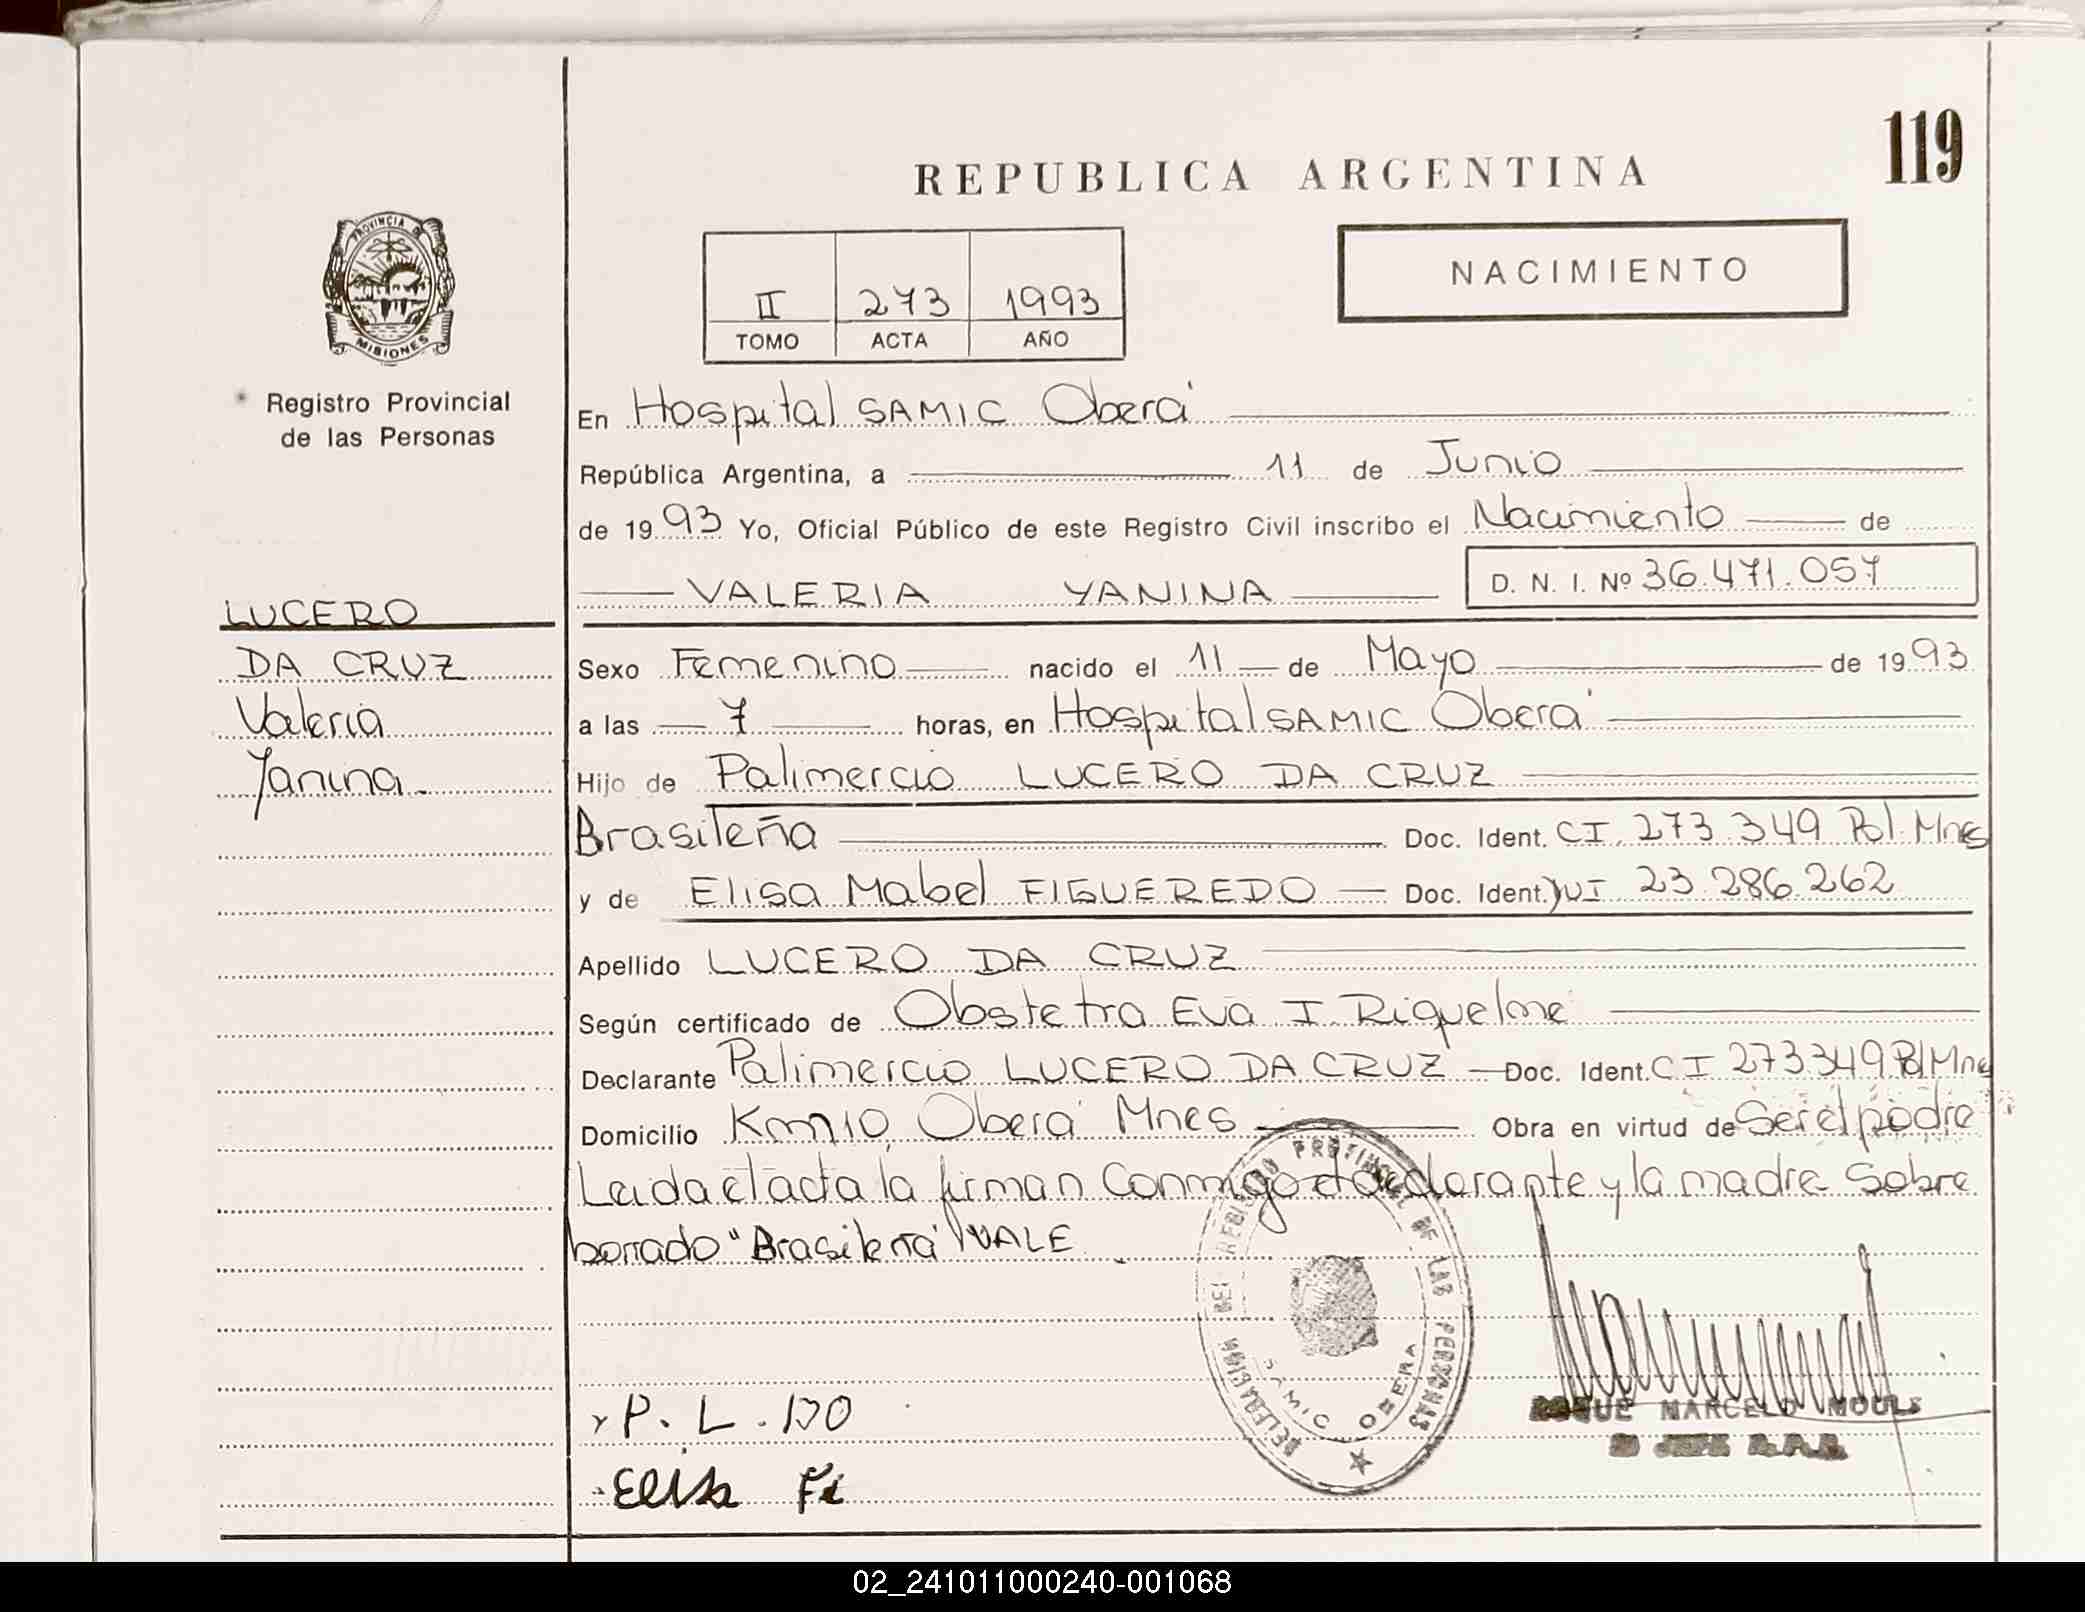 119
REPUBLICA ARGENTINA
PROVINCIA DE
MISIONES
Registro Provincial
de las Personas
NACIMIENTO
II 273 1993
TOMO ACTA AÑO
En Hospital SAMIC Oberá
República Argentina, a 11 de Junio
de 1993 Yo, Oficial Público de este Registro Civil inscribo el Nacimiento de
VALERIA YANINA D. N. I. Nº 36.471.057
LUCERO
DA CRUZ
Valeria
Yanina.
Sexo Femenino nacido el 11 de Mayo de 1993
a las 7 horas, en Hospital SAMIC Oberá
Hijo de Palimercio LUCERO DA CRUZ
Brasileña Doc. Ident. CI. 273.349 Pol. Mnes
y de Elisa Mabel FIGUEREDO Doc. Ident. 23.286.262
Apellido LUCERO DA CRUZ
Según certificado de Obstetra Eva I Riquelme
Declarante Palimercio LUCERO DA CRUZ Doc. Ident. CI 273349 Pol Mnes
Domicilio Km 10, Oberá Mnes Obra en virtud de Ser el padre
Leida el acta la firman Conmigo el declarante y la madre Sobre
borrado "Brasileña" VALE
DELEGACION DEL REGISTRO PROVINCIAL DE LAS PERSONAS
SAMIC OBERA
P. L. DO
ROQUE MARCELO
JEFE R.P.P.
Elisa Fi
02_241011000240-001068